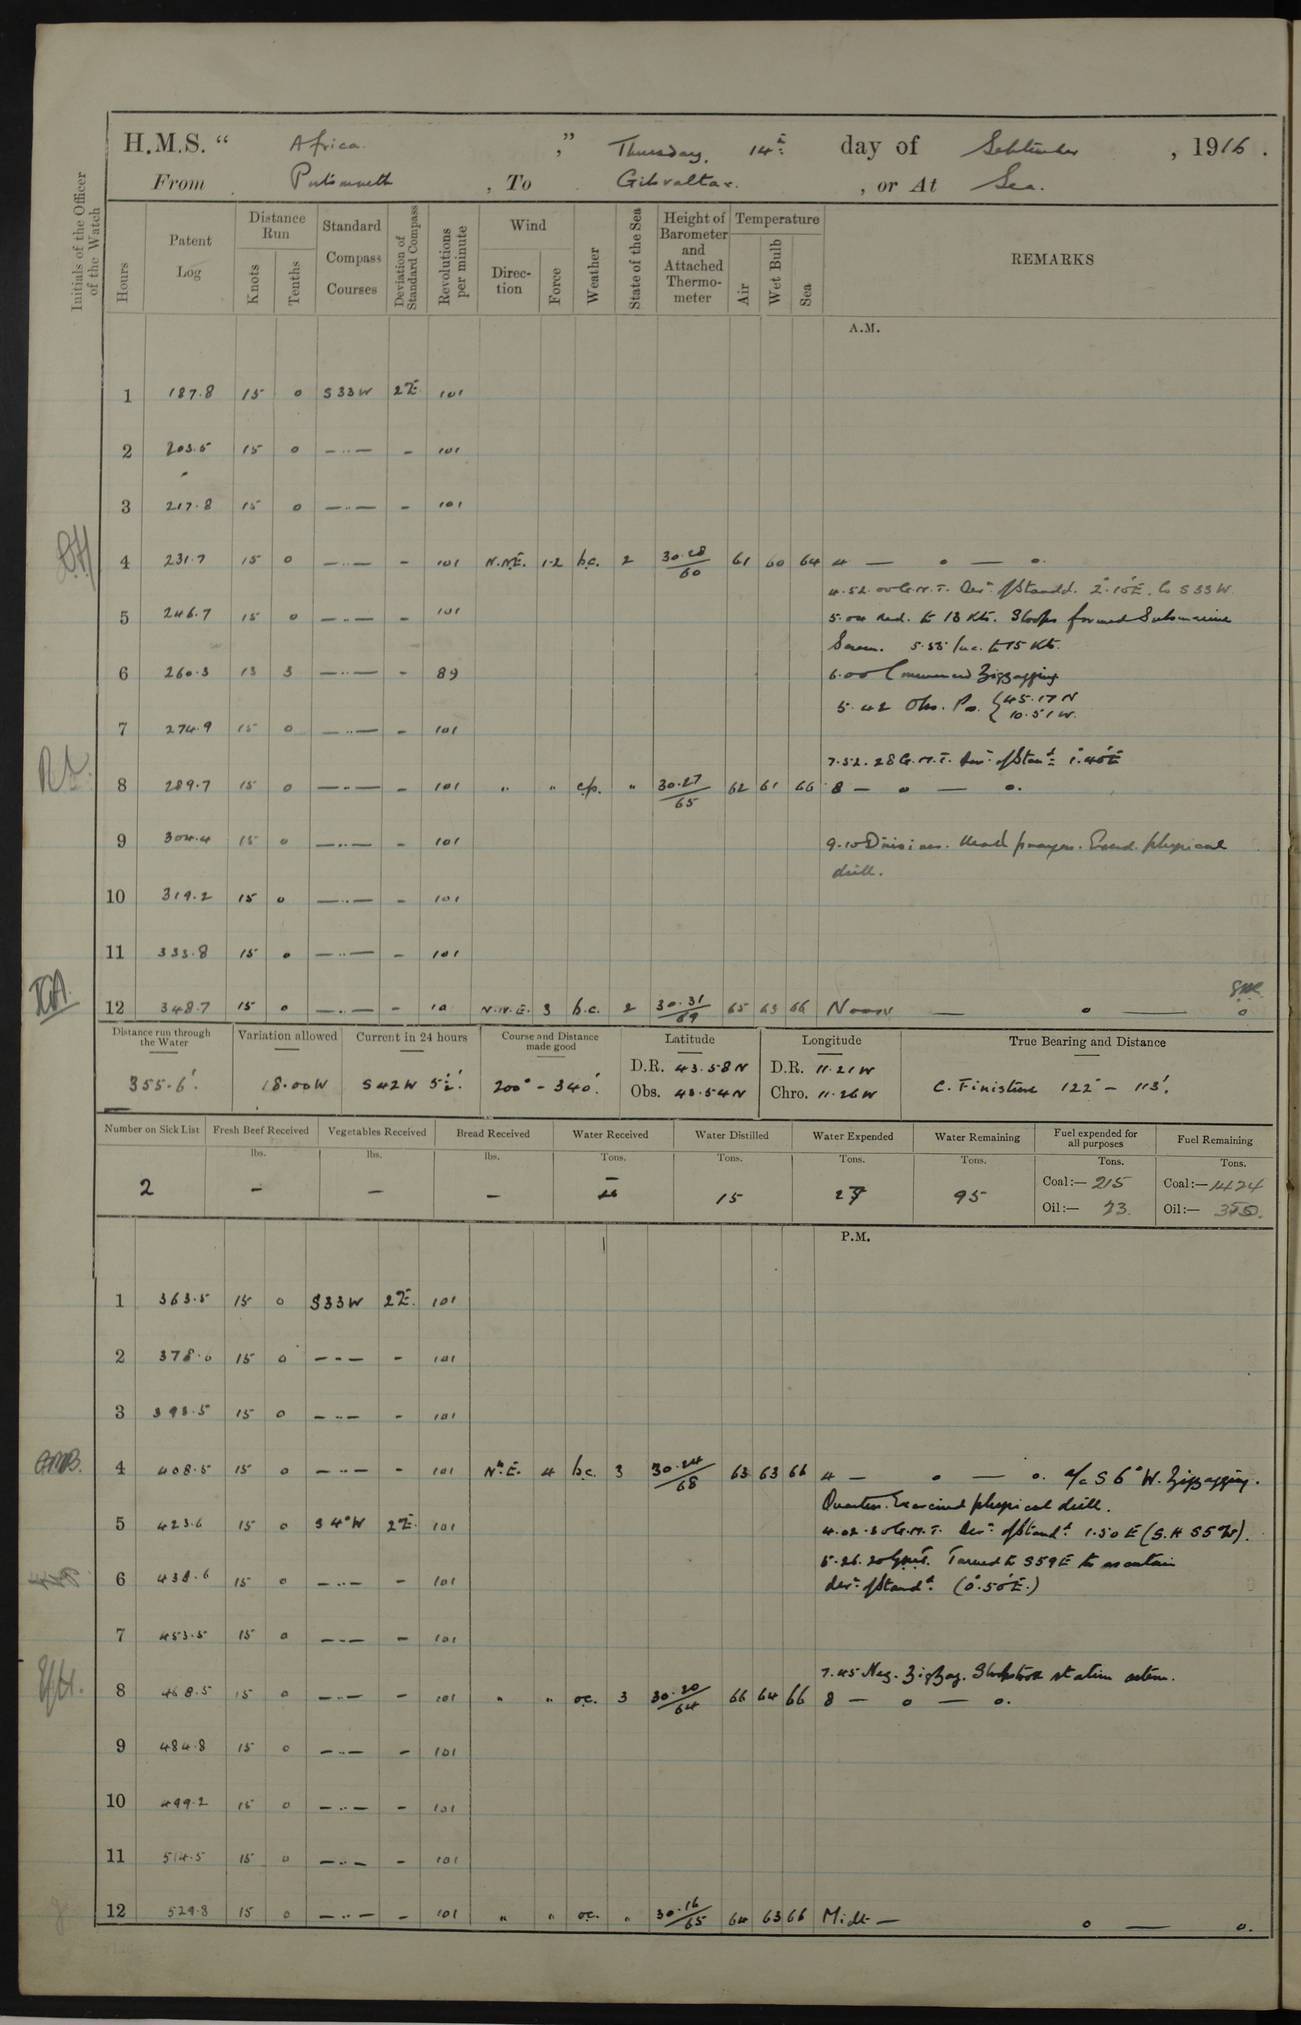 H.M.S. “ Africa. ,” Thursday, 14th day of September , 1916 .
From Portsmouth , To Gibraltar. , or At Sea.
Initials of the Officer of the Watch
Hours Patent Log Distance Run Knots Tenths Standard Compass Courses Deviation of Standard Compass Revolutions per minute Wind Direction Force Weather State of the Sea Height of Barometer and Attached Thermometer Temperature Air Wet Bulb Sea REMARKS
A.M.
1 187.8 15 0 S33W 2E 101
2 203.5 15 0 —..— - 101
3 217.8 15 0 —..— - 101
4 231.7 15 0 —..— - 101 N.N.E. 1-2 b.c. 2 30.28/60 61 60 64 4 — o — o.
4.52.00 G.M.T. Devn of Standd. 2°.10'E. Co S33W.
5 246.7 15 0 —..— - 101 5.04 Red. to 13 Kts. Sloops formed Submarine
Screen. 5.55 Inc. to 15 Kts.
6 260.3 13 3 —..— - 89 6.00 Commenced Zigzagging
5.42 Obs. Po. { 45.17 N
10.51 W.
7 274.9 15 0 —..— - 101
7.52.28 G.M.T. Devn of Stand 1°.40'E
8 289.7 15 0 —..— - 101 " " c.p. " 30.27/65 62 61 66 8 — o — o.
9 304.4 15 0 —..— - 101 9.10 Divisions. Read prayers. Exercd. physical
drill.
10 319.2 15 0 —..— - 101
11 333.8 15 0 —..— - 101
12 348.7 15 0 —..— - 10 N.N.E. 3 b.c. 2 30.31/69 65 63 66 Noon — o — o
Distance run through the Water Variation allowed Current in 24 hours Course and Distance made good Latitude Longitude True Bearing and Distance
355.6'. 18.00W S42W 5½'. 200° - 340'. D.R. 43.58N D.R. 11.21W C. Finisterre 122° - 113'.
Obs. 43.54N Chro. 11.26W
Number on Sick List Fresh Beef Received Vegetables Received Bread Received Water Received Water Distilled Water Expended Water Remaining Fuel expended for all purposes Fuel Remaining
lbs. lbs. lbs. Tons. Tons. Tons. Tons. Tons. Tons.
2 - - - - 15 27 95 Coal:— 215 Coal:— 1424
Oil:— 23. Oil:— 350.
P.M.
1 363.5 15 0 S33W 2E. 101
2 378.0 15 0 —..— - 101
3 393.5 15 0 —..— - 101
4 408.5 15 0 —..— - 101 N.E. 4 b.c. 3 30.24/68 63 63 66 4 — o — o. a/c S 6° W. Zigzagging.
Quarters. Exercised physical drill.
5 423.6 15 0 S4°W 2E. 101 4.02.30 G.M.T. Devn of Standd 1.50E (S.H S5°W).
5.26.20 G.M.T. Turned to S59E to ascertain
6 438.6 15 0 —..— - 101 devn of Standd. (0°.50'E.)
7 453.5 15 0 —..— - 101
7.45 Neg. Zigzag. Sloops took station astern.
8 468.5 15 0 —..— - 101 " " o.c. 3 30.20/64 66 64 66 8 — o — o.
9 484.8 15 0 —..— - 101
10 499.2 15 0 —..— - 101
11 514.5 15 0 —..— - 101
12 529.8 15 0 —..— - 101 " " o.c. " 30.16/65 64 63 66 Midt — o — o.